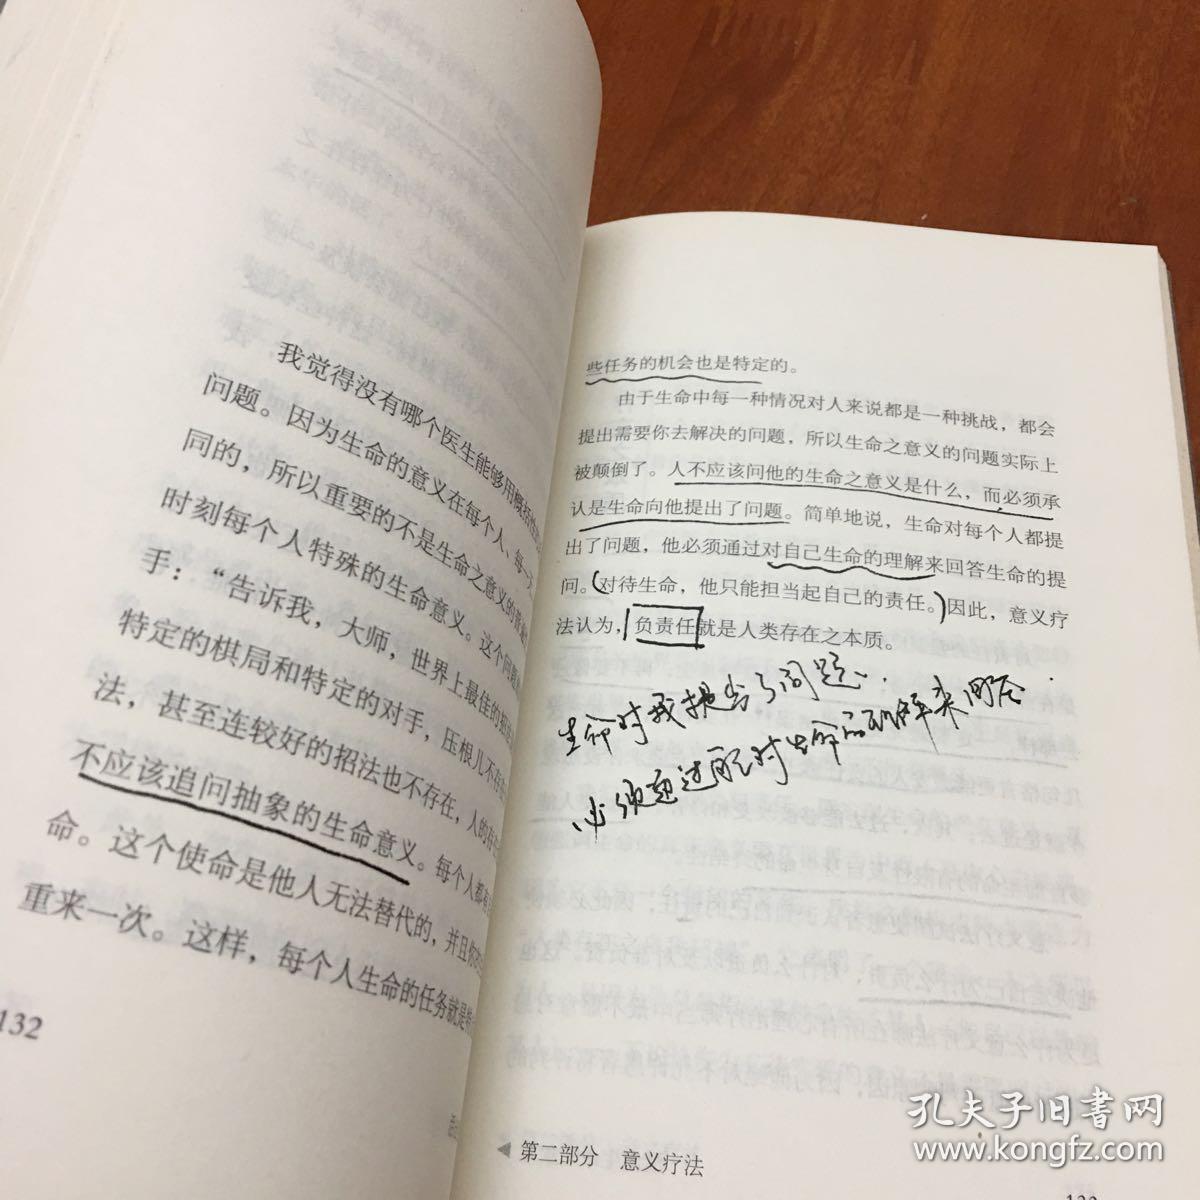 我觉得没有哪个医生能够用概括的
问题。因为生命的意义在每个人、每一
同的，所以重要的不是生命之意义的普遍
时刻每个人特殊的生命意义。这个问题
手：“告诉我，大师，世界上最佳的招
特定的棋局和特定的对手，压根儿不存在
法，甚至连较好的招法也不存在，人的存
不应该追问抽象的生命意义。每个人都有
命。这个使命是他人无法替代的，并且你
重来一次。这样，每个人生命的任务就是
132
些任务的机会也是特定的。
由于生命中每一种情况对人来说都是一种挑战，都会
提出需要你去解决的问题，所以生命之意义的问题实际上
被颠倒了。人不应该问他的生命之意义是什么，而必须承
认是生命向他提出了问题。简单地说，生命对每个人都提
出了问题，他必须通过对自己生命的理解来回答生命的提
问。(对待生命，他只能担当起自己的责任。)因此，意义疗
法认为，负责任就是人类存在之本质。
生命对我提出了问题.
必须通过 对生命 理解来回答
第二部分 意义疗法
孔夫子旧书网
www.kongfz.com